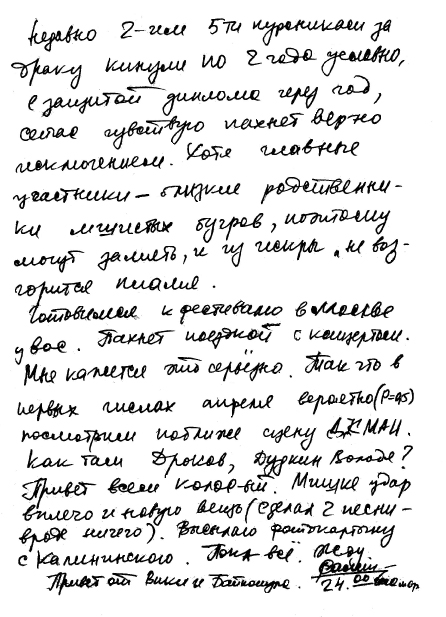 Недавно 2-им 5ти курсникам за
драку кинули по 2 года условно,
с защитой диплома через год,
сейчас чувствую пахнет верно
исключением. Хотя главные
участники – близкие родственни-
ки мшистых бугров, поэтому
могут замять, и из искры „не воз-
горится пламя.
Готовимся к фестивалю в Москве
у вас. Пахнет поездкой с концертом.
Мне кажется это серьёзно. Так что в
первых числах апреля вероятно (P=0,5)
посмотрим поближе сцену ДК МАИ.
Как там Дроков, Дудкин Володя?
Привет всем
Мишке удар
в плечо и новую вещь (сделал 2 песни-
вроде ничего). Высылаю фотокарточку
с Калининского. Пока всё. Жду
Привет от Вики и
24.00